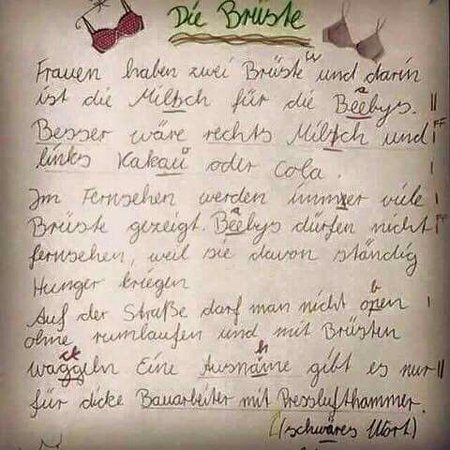 Die Brüste
Frauen haben zwei Brüste und darin
ist die Miltsch für die Beebys.
Besser wäre rechts Miltch und
links Kakau oder Cola.
Im Fernsehen werden immer viele
Brüste gezeigt. Beebys dürfen nicht
fernsehen, weil sie davon ständig
Hunger kriegen
Auf der Straße darf man nicht open
ohne rumlaufen und mit Brüsten
waggeln Eine Ausnáme gibt es nur
für dicke Bauarbeiter mit Presslufthammer.
(schwäres Wort)